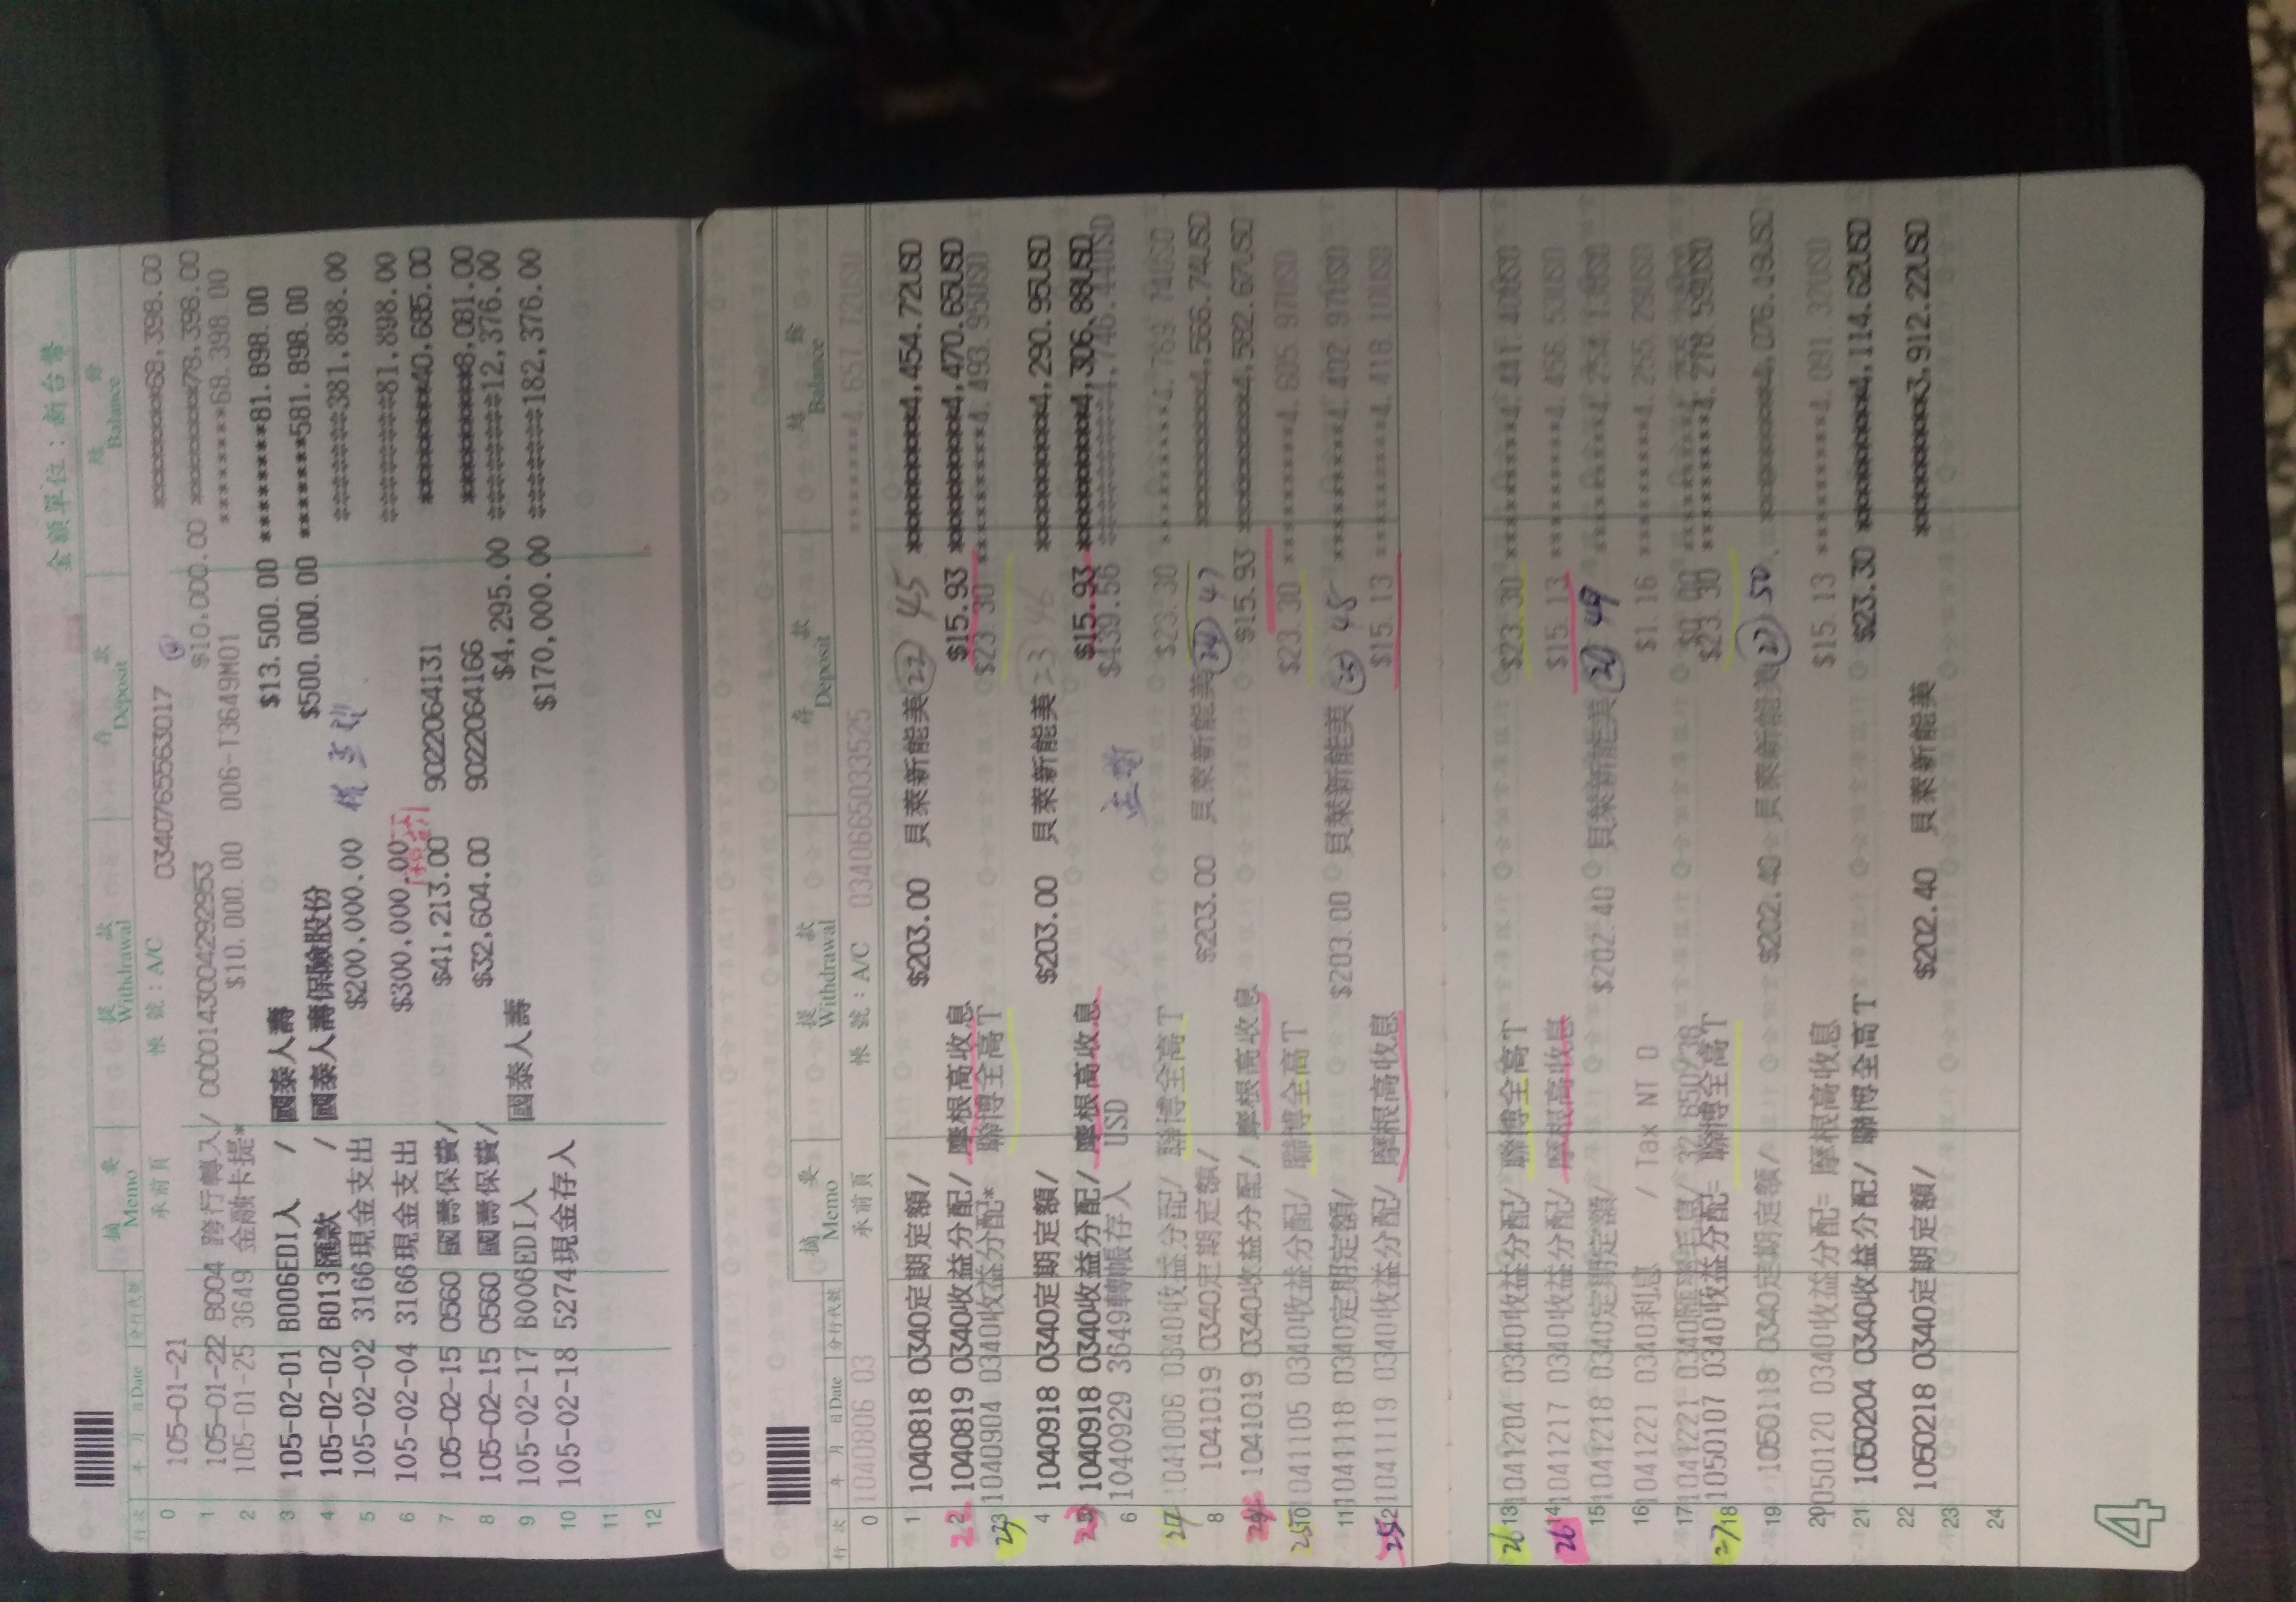 金額單位：新台幣
行次 年 月 日Date 分行代號 摘要 Memo 提款 Withdrawal 存款 Deposit 結餘 Balance
0 105-01-21 承前頁 帳號：A/C 03407655563017 ********68,398.00
1 105-01-22 8004 跨行轉入/ 0000143004292953 $10,000.00 ********78,398.00
2 105-01-25 3649 金融卡提* $10,000.00 006-T3649M01 ********68,398.00
3 105-02-01 B006EDI入 / 國泰人壽 $13,500.00 ********81,898.00
4 105-02-02 B013匯款 / 國泰人壽保險股份 $500,000.00 *******581,898.00
5 105-02-02 3166現金支出 $200,000.00 *******381,898.00
6 105-02-04 3166現金支出 $300,000.00 ********81,898.00
7 105-02-15 0560 國壽保費/ $41,213.00 9022064131 ********40,685.00
8 105-02-15 0560 國壽保費/ $32,604.00 9022064166 ********8,081.00
9 105-02-17 B006EDI入 國泰人壽 $4,295.00 ********12,376.00
10 105-02-18 5274現金存入 $170,000.00 *******182,376.00
11
12
行次 年 月 日Date 分行代號 摘要 Memo 提款 Withdrawal 存款 Deposit 結餘 Balance
0 1040806 03 承前頁 帳號：A/C 0340665033525 ********4,657.72USD
1 1040818 0340定期定額/ $203.00 貝萊新能美 22 45 ********4,454.72USD
22 2 1040819 0340收益分配/ 摩根高收息 $15.93 ********4,470.65USD
3 1040904 0340收益分配* 聯博全高T $23.30 ********4,493.95USD
4 1040918 0340定期定額/ $203.00 貝萊新能美 23 46 ********4,290.95USD
23 1040918 0340收益分配/ 摩根高收息 $15.93 ********4,306.88USD
6 1040929 3649轉帳存入 USD $439.56 ********4,746.44USD
1041006 0340收益分配/ 聯博全高T $23.30 ********4,769.74USD
8 1041019 0340定期定額/ $203.00 貝萊新能美 24 47 ********4,566.74USD
1041019 0340收益分配/ 摩根高收息 $15.93 ********4,582.67USD
25 10 1041105 0340收益分配/ 聯博全高T $23.30 ********4,605.97USD
11 1041118 0340定期定額/ $203.00 貝萊新能美 25 48 ********4,402.97USD
25 12 1041119 0340收益分配/ 摩根高收息 $15.13 ********4,418.10USD
26 13 1041204 0340收益分配/ 聯博全高T $23.30 ********4,441.40USD
26 14 1041217 0340收益分配/ 摩根高收息 $15.13 ********4,456.53USD
15 1041218 0340定期定額/ $202.40 貝萊新能美 49 ********4,254.13USD
16 1041221 0340利息 / Tax NT 0 $1.16 ********4,255.29USD
17 1041221 0340 $0.00
27 18 1050107 0340收益分配= 聯博全高T $23.30 ********4,278.59USD
19 1050118 0340定期定額/ $202.40 貝萊新能美 27 50 ********4,076.19USD
20 1050120 0340收益分配= 摩根高收息 $15.13 ********4,091.32USD
21 1050204 0340收益分配/ 聯博全高T $23.30 ********4,114.62USD
22 1050218 0340定期定額/ $202.40 貝萊新能美 ********3,912.22USD
23
24
4